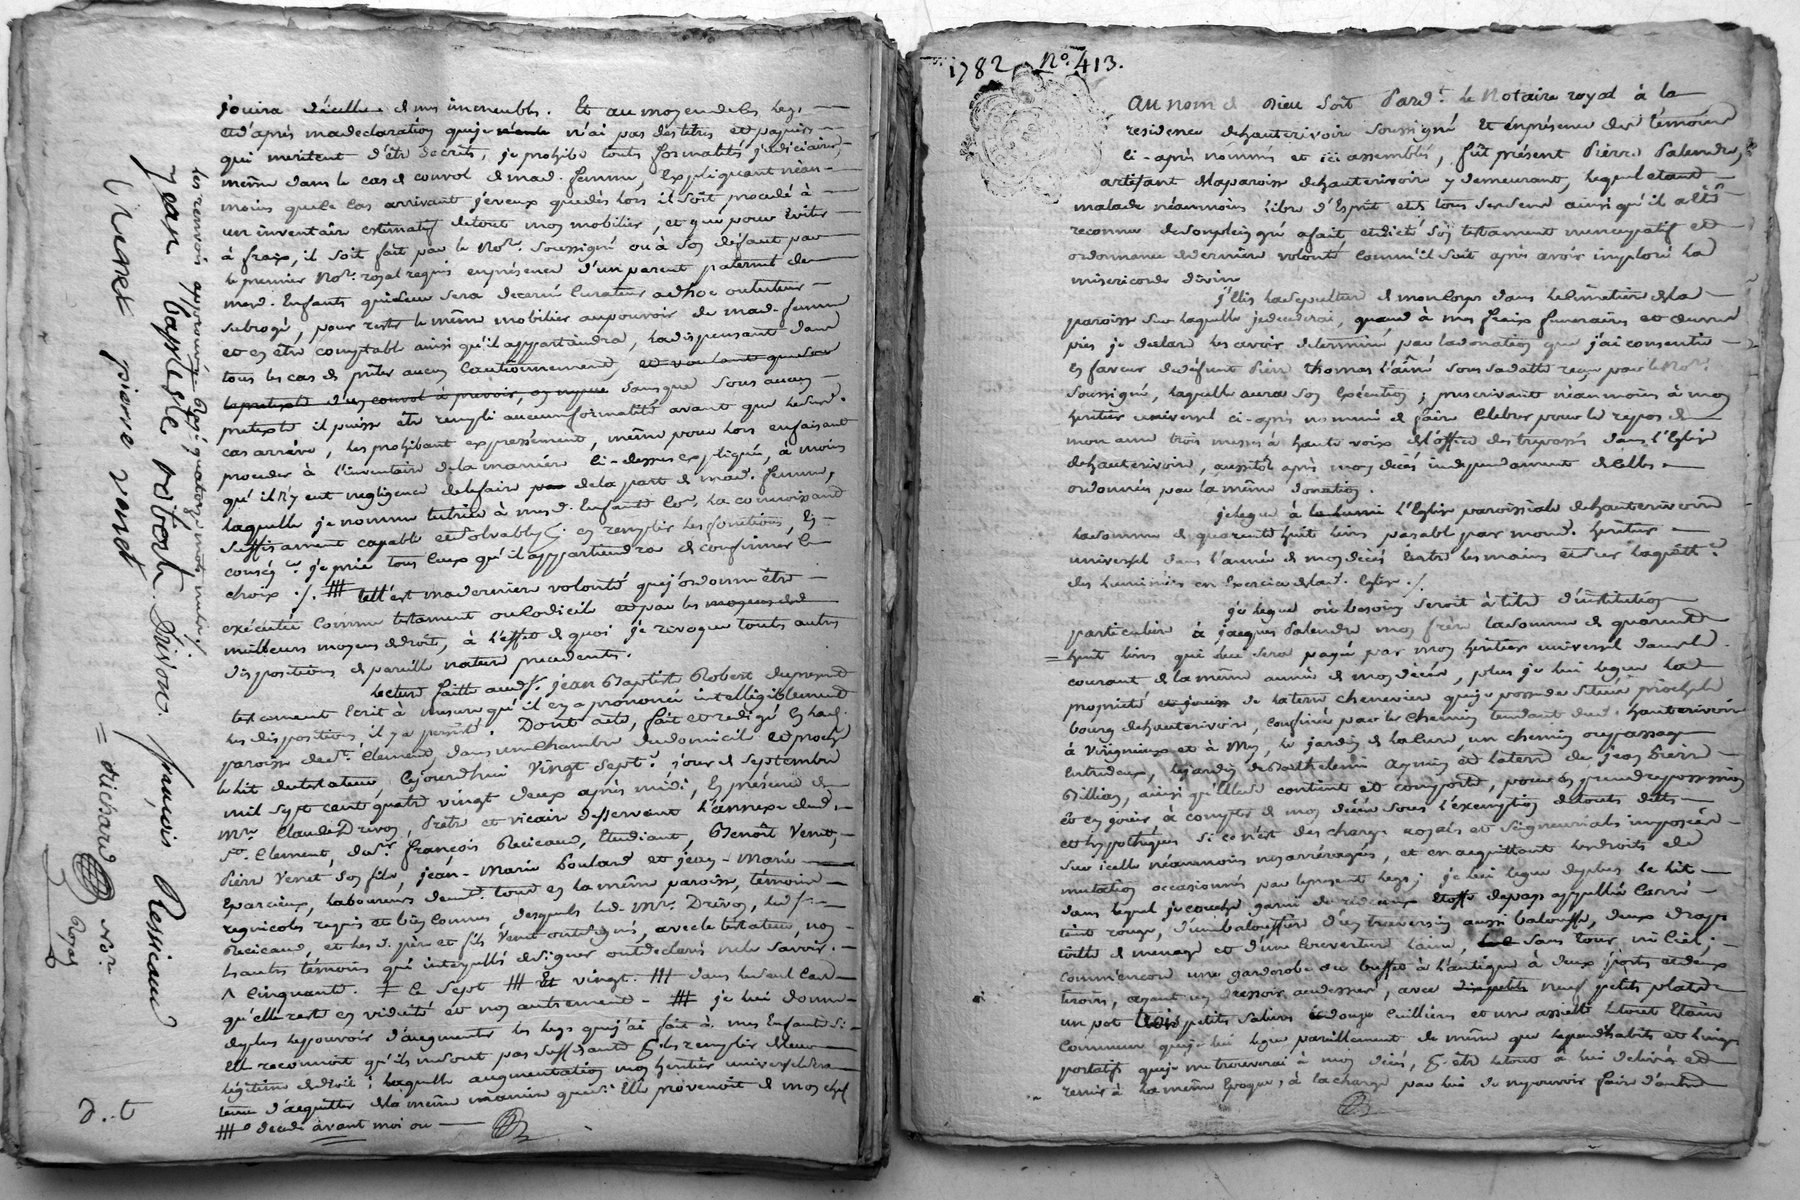 jouira d'icelle & mes immeubles. Et au moyen de les legs
et d'après ma declaration que je n'ai pas des titres et papiers
qui meritent d'être decrits, je prohibe toutes formalités judiciaires,
même dans le cas de convol de mad. femme, expliquant néan-
moins que le cas arrivant je veux que dès lors il soit procedé à
un inventaire estimatif de tout mon mobilier, et que pour éviter
à fraix, il soit fait par le Nore. soussigné ou à son défaut par
le premier Nore. royal requis en présence d'un parent paternel de
mesd. Enfants qui leur sera decerné Curateur ad hoc ou tuteur
subrogé, pour rester le même mobilier au pouvoir de mad. femme
et en être comptable ainsi qu'il appartiendra, la dispensant dans
tous les cas de prêter aucun Cautionnement, et voulant que sous
le pretexte d'un convol à prevoir, on
pretexte il puisse être rempli aucune formalité avant que led.
cas arrive, les prohibant expressément, même pour lors en faisant
proceder à l'inventaire de la manière ci-dessus expliquée, à moins
qu'il n'y eut negligence de le faire de la part de mad. femme,
laquelle je nomme tutrice à mesd. enfants la connoissant
suffisamment capable et solvable p. en remplir les fonctions, En
conséqce. je prie tous ceux qu'il appartiendra de confirmer le
choix ./. # tell'est ma derniere volonté que j'ordonne être
exécutée comme testament ou Codicile et par les moyens
meilleurs moyens de droit, à l'effet de quoi je revoque toutes autres
dispositions de pareille nature precedentes.
Lecture faite aud. sr. jean Baptiste Robert du present
testament Ecrit à mesure qu'il en a prononcé intelligiblement
les dispositions il y a persisté. Dont acte, fait et redigé En lad.
paroisse de St. Clement, dans une Chambre du domicile et proche
le lit du testateur, cejourd'hui vingt sept. jour de Septembre
mil sept cent quatre vingt deux après midi, En présence de
Mre. Claude Drivon, Prêtre et vicaire desservant l'annexe dud.
St. Clement, de Sr. françois Ressicaud, Etudiant, Benoît Venet,
Pierre Venet son fils, jean-Marie Poulard et jean-Marie
laboureurs demts. tous en la même paroisse, témoins
requis et bien connus, desquels led. Mre. Drivon, led. sr.
Ressicaud, et lesd. père et fils Venet ont signé, avec le testateur, non
les autres témoins qui interpellés de signer ont declaré ne le savoir.
^ Cinquante. ‡ Le Sept # Et vingt. # dans le seul Cas
qu'elle reste en viduité et non autrement - # je lui donne
de plus le pouvoir d'augmenter les legs que j'ai fait à mes Enfants si
elle reconnoit qu'ils ne sont pas suffisants p. les remplir de leur
légitime de droit ; laquelle augmentation mon heritier universel sera
tenu d'acquitter de la même maniere que si Elle provenoit de mon chef
# decedé avant moi ou
les renvois approuvés & Rayé quatorze mots nuls.
jean baptiste robert. Drivon. françois Ressicaud
venet pierre venet
= Richard Nore. Royal
d..t
1782. No. 413.
Au nom de Dieu soit Pardt. le Notaire royal à la
residence d'hauterivoire soussigné Et en présence des témoins
ci-après nommés et ici assemblés, fût présent Pierre Palendre,
artisant de la paroisse d'hauterivoire y demeurant, lequel etant
malade néanmoins libre d'Esprit et de tous ses sens ainsi qu'il a êté
reconnu de son plein gré a fait et dicté son testament nuncupatif et
ordonnance de derniere volonté Comm'il suit après avoir imploré la
misericorde divine
j'Elis la sepulture de mon Corps dans le Cimetière de la
paroisse sur laquelle je decederai, quand à mes fraix funeraires et œuvres
pies je declare les avoir determiné par la donation que j'ai consentie
en faveur de défunt Pierre thomas l'aîné sous sa datte reçue par le Nore.
soussigné, laquelle aura son Exécution ; prescrivant néanmoins à mon
heritier universel ci-après nommé de faire Celebrer pour le repos de
mon ame trois messes à haute voix de l'office des trepassés dans l'Eglise
d'hauterivoire, aussitôt après mon décès independament de celles
ordonnées par la même donation.
je legue à l'Eglise paroissiale d'hauterivoire
la somme de quarente huit livres payable par mond. heritier
universel dans l'année de mon décès Entre les mains et sur la quittce.
des luminiers en Exercice de lad. Eglise ./.
je legue où besoin seroit à titre d'institution
particuliere à jacques Palendre mon frère la somme de quarente
huit livres qui lui sera payée par mon heritier universel dans le
courant de la même année de mon décès, plus je lui legue la
proprieté de la terre chenevier que je possede située proche le
bourg d'hauterivoire, confinée par le Chemin tendant dud. hauterivoire
à Virigneux et à Mey, le jardin de la Cure, un chemin ou passage
Entredeux, le jardin de Barthelemi et la terre de jean Pierre
Billian, ainsi qu'Elle se contient et comporte, pour en prendre possession
et en jouir à compter de mon décès sous l'exemption de toutes dettes
et hypotheques si ce n'est des charges Royales et Seigneuriales imposées
sur icelle néanmoins non arréragées, et en acquittant les droits de
mutation occasionnés par le present legs ; je lui legue de plus le lit
dans lequel je couche garni de rideaux Etoffe de pays appellée Carré
teint rouge, d'une baloufiere d'un traversin aussi baloufle, deux draps
toile de menage et d'une Couverture laine, sans tour, ni Ciel ;
comm'encore une garderobe ou buffet à l'antique à deux portes et deux
tiroirs, ayant un dressoir au dessus, avec neuf petits plats
un pot trois petits salieres et douze Cuillières et une assiette letout Etain
Commun que je lui legue pareillement de même que les habits et linges
portatifs que je me trouverai à mon décès, p. être le tout à lui delivré et
remis à la même Epoque, à la charge par lui de ne pouvoir faire d'autre